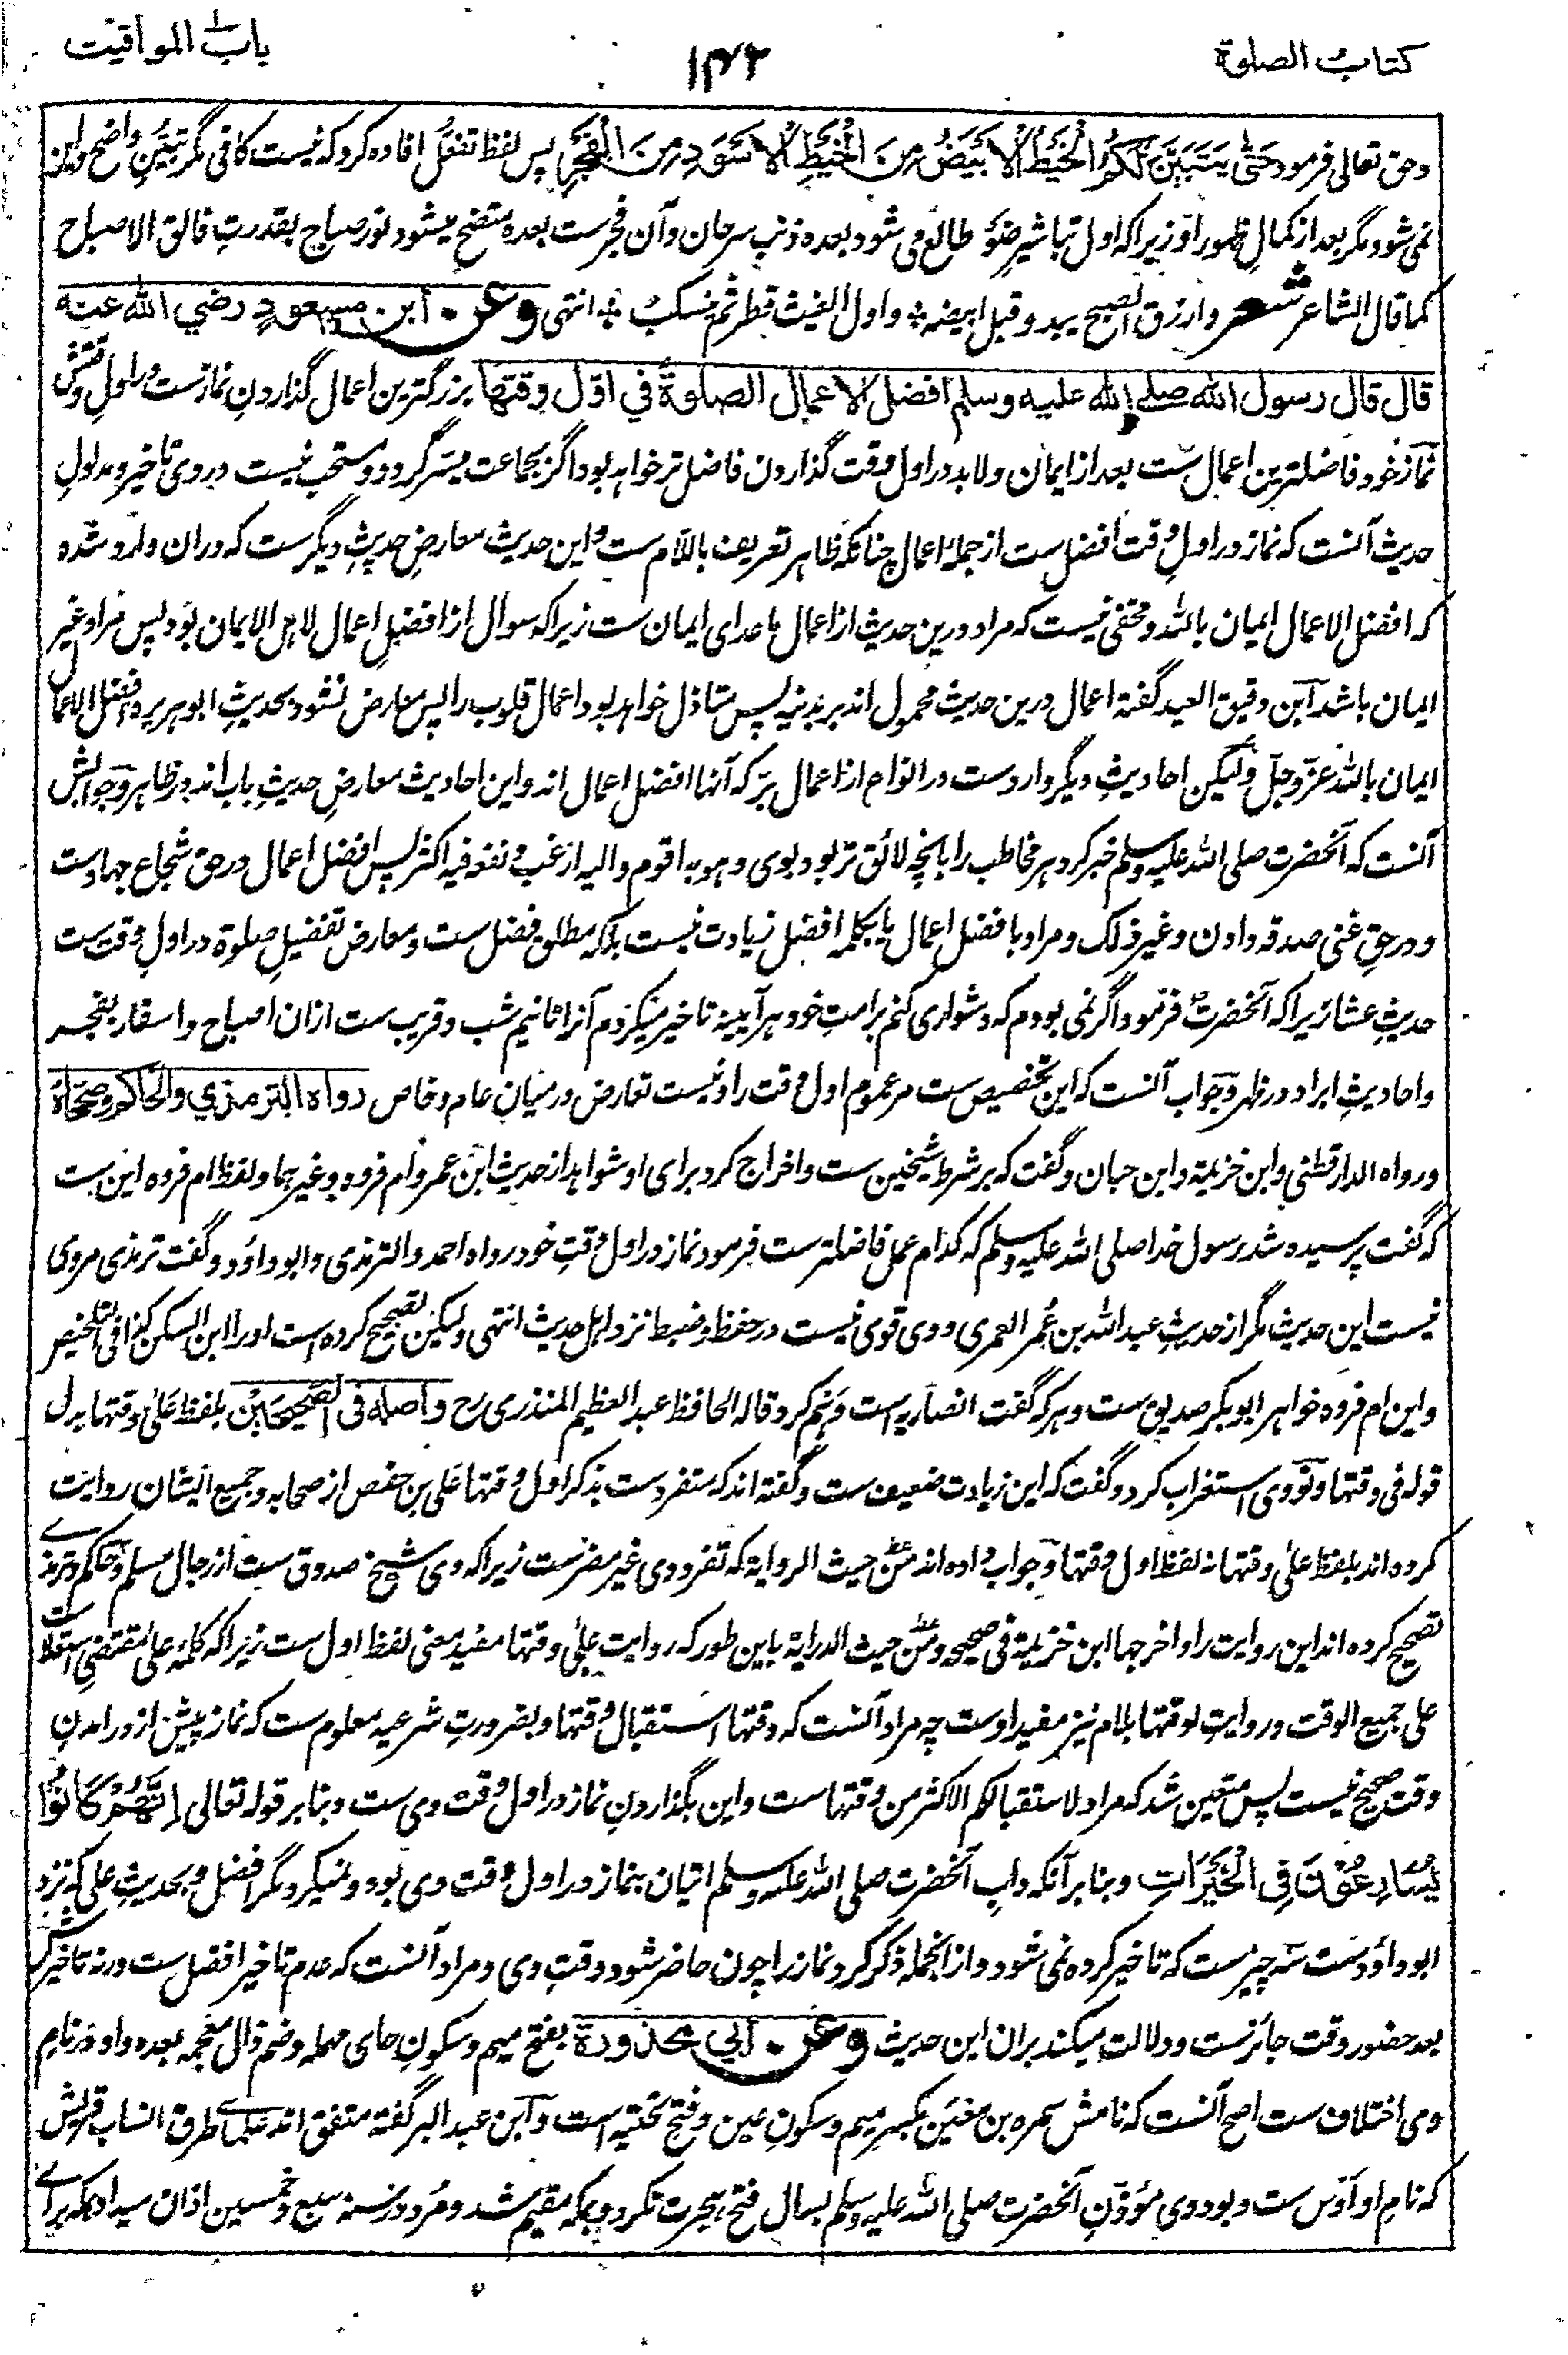 كتاب الصلوة
۱۴۲
باب المواقيت
وحق تعالی فرمود حَتّٰی يَتَبَيَّنَ لَكُمُ الْخَيْطُ الْاَبْيَضُ مِنَ الْخَيْطِ الْاَسْوَدِ مِنَ الْفَجْرِ پس لفظ تفعّل افاده کرد که نیست کافی مگر تبیّنِ واضح و این
نمی شود مگر بعد از کمالِ ظهور او زیراکه اول تباشیرِ ضوء طالع می شود بعده ذنبِ سرحان و آن فجرست بعده متضح میشود نورِ صباح بقدرتِ فالق الاصباح
کما قال الشاعر شعر وازرق الصبح یبدو قبل ابیضه ÷ واول الغیث قطر ثم ینسکبُ ÷ انتهی وعن ابن مسعودٍ رضي الله عنه
قال قال رسول الله صلے الله عليه وسلم افضل الاعمال الصلوةُ في اوّل وقتها بزرگترین اعمال گذاردنِ نمازست در اولِ وقتش
نماز خود فاضلترینِ اعمال ست بعد از ایمان ولابد در اول وقت گذاردن فاضل تر خواهد بود اگر بجماعت میسّر گردد و مستحب نیست در وی تاخیر و مدلولِ
حدیث آنست که نماز در اولِ وقت افضل ست از جملهٔ اعمال چنانکه ظاهر تعریف باللام ست و این حدیث معارضِ حدیثِ دیگرست که دران وارد شده
که افضل الاعمال ایمان بالله ومخفی نیست که مراد درین حدیث از اعمال ماعدای ایمان ست زیراکه سوال از افضلِ اعمال لاهل الایمان بود پس مراد غیر
ایمان باشد ابن دقیق العید گفته اعمال درین حدیث محمول اند بر بدنیه پس متناول نخواهد بود اعمال قلوب را پس معارض نشود بحدیثِ ابوهریره افضل الاعمال
ایمان بالله عزّ وجلّ ولیکن احادیثِ دیگر واردست در انواع از اعمال برّ که آنها افضل اعمال اند و این احادیث معارضِ حدیثِ باب اند در ظاهر وجوابش
آنست که آنحضرت صلی الله علیه وسلم خبر کرد هر مخاطب را بانچه لائق تر بود بوی وهو به اقوم والیه ارغب ونفعه فیه اکثر پس افضل اعمال در حق شجاع جهادست
و در حقِ غنی صدقه دادن وغیر ذلک ومراد بافضل اعمال یا بکلمه افضل زیادت نیست بلکه مطلق فضل ست ومعارضِ تفضیلِ صلوة در اولِ وقت ست
حدیثِ عشا زیراکه آنحضرت فرمود اگر نمی بودم که دشواری کنم بر امتِ خود هر آیینه تاخیر میکردم آنرا تا نیم شب وقریب ست ازان اصباح واسفار بفجر
واحادیثِ ابراد در ظهر وجواب آنست که این تخصیص ست مر عموم اول وقت را ونیست تعارض درمیانِ عام وخاص رواه الترمذي والحاكم وصححاه
ورواه الدارقطنی وابن خزیمة وابن حبان وگفت که بر شرط شیخین ست واخراج کرد برای او شواهد از حدیث ابن عمر وام فروه وغیرهما ولفظ ام فروه این ست
که گفت پرسیده شد رسول خدا صلی الله علیه وسلم که کدام عمل فاضلترست فرمود نماز در اول وقتِ خود رواه احمد والترمذی وابو داؤد وگفت ترمذی مروی
نیست این حدیث مگر از حدیثِ عبد الله بن عُمر العمری ووی قوی نیست در حفظ وضبط نزد اهل حدیث انتهی ولیکن تصحیح کرده است اورا ابن السکن کذا فی التلخیص
و این ام فروه خواهرِ ابوبکر صدیق ست وهر که گفت انصاریه است وَهم کرد قاله الحافظ عبد العظیم المنذری رح واصله فى الصحيحين بلفظ عَلیٰ وقتها بدل
قوله فی وقتها ونووی استغراب کرد وگفت که این زیادت ضعیف ست وگفته اند که متفردست بذکر اول وقتها علی بن حفص از صحابه وجمیع ایشان روایت
کرده اند بلفظ علیٰ وقتها نه لفظ اول وقتها وجواب داده اند من حیث الروایة که تفرد وی غیر مضرست زیراکه وی شیخ صدوق ست از رجالِ مسلم وحاکم وترمذے
تصحیح کرده اند این روایت را واخرجها ابن خزیمة فی صحیحه ومن حیث الدرایة باین طور که روایت علیٰ وقتها مفید معنی لفظ اول ست زیراکه کلمه علیٰ مقتضی استعلاست
علی جمیع الوقت وروایتِ لوقتها بلام نیز مفید اوست چه مراد آنست که وقتها استقبال وقتها وبضرورتِ شرعیه معلوم ست که نماز پیش از درامدنِ
وقت صحیح نیست پس متعین شد که مراد لاستقبالکم الاکثر من وقتها ست و این بگذاردنِ نماز در اول وقت وی ست وبنابر قوله تعالی اِنَّهُمْ كَانُوْا
يُسَارِعُوْنَ فِى الْخَيْرَاتِ وبنابر آنکه دابِ آنحضرت صلی الله علیه وسلم اتیان بنماز در اول وقت وی بود ونمیکرد مگر افضل وبحدیثِ علی که نزد
ابو داؤدست سه چیزست که تاخیر کرده نمی شود وازانجمله ذکر کرد نماز را چون حاضر شود وقتِ وی ومراد آنست که عدم تاخیر افضل ست ورنه تاخیرش
بعد حضورِ وقت جائزست ودلالت میکند بران این حدیث وعن ابي محذورة بفتح میم وسکونِ حای مهمله وضم ذال معجمه بعده واو در نامِ
وی اختلاف ست اصح آنست که نامش سمره بن معین بکسر میم وسکونِ عین وفتح تحتیه است وابن عبد البر گفته متفق اند علماے طرق انساب قریش
که نامِ او اَوس ست وبود وی مؤذّنِ آنحضرت صلی الله علیه وسلم بسال فتح هجرت نکرد وبمکه مقیم شد ومرد در سنه سبع وخمسین اذان میداد بمکه براے